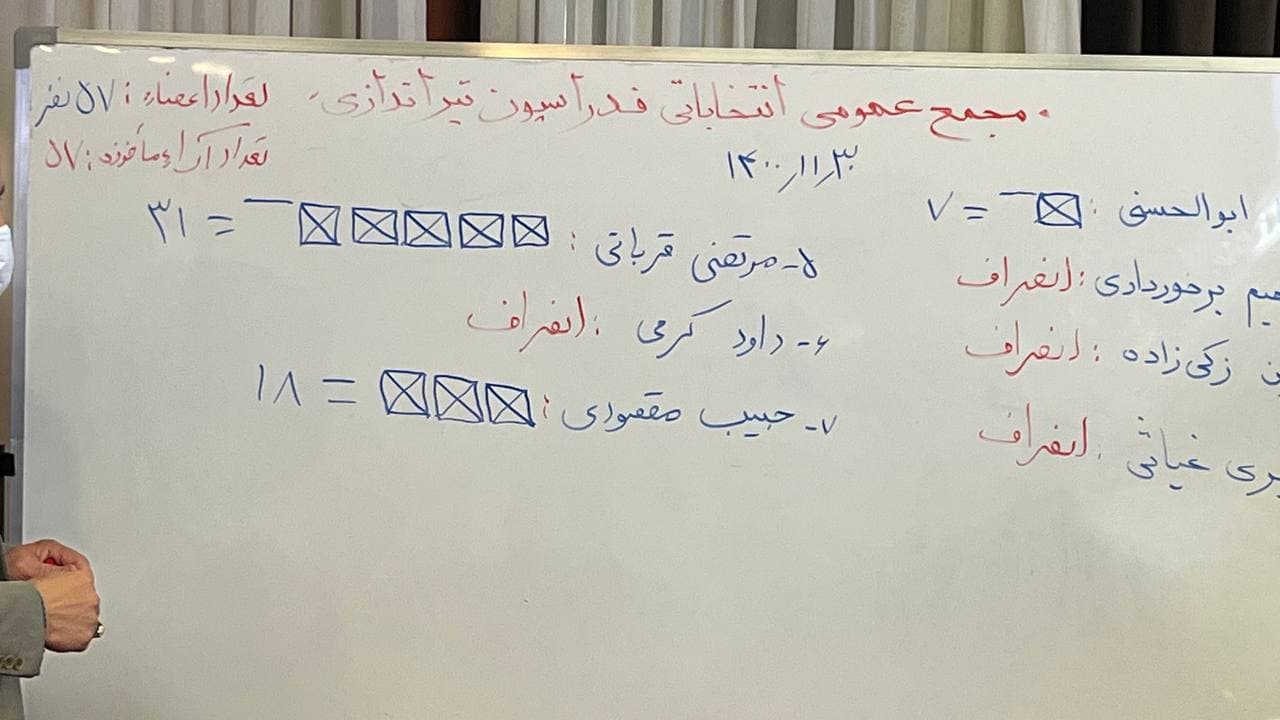 ۰ مجمع عمومی انتخاباتی فدراسیون تیراندازی ۰
تعداد اعضاء : ۵۷ نفر
تعداد آراء مأخوذه : ۵۷
۱۴۰۰٫۱۱٫۳۰
ابوالحسنی : = ۷
برخورداری : انصراف
زکی‌زاده : انصراف
غیاثی : انصراف
۵- مرتضی قربانی : = ۳۱
۶- داود کرمی : انصراف
۷- حبیب مقصودی : = ۱۸